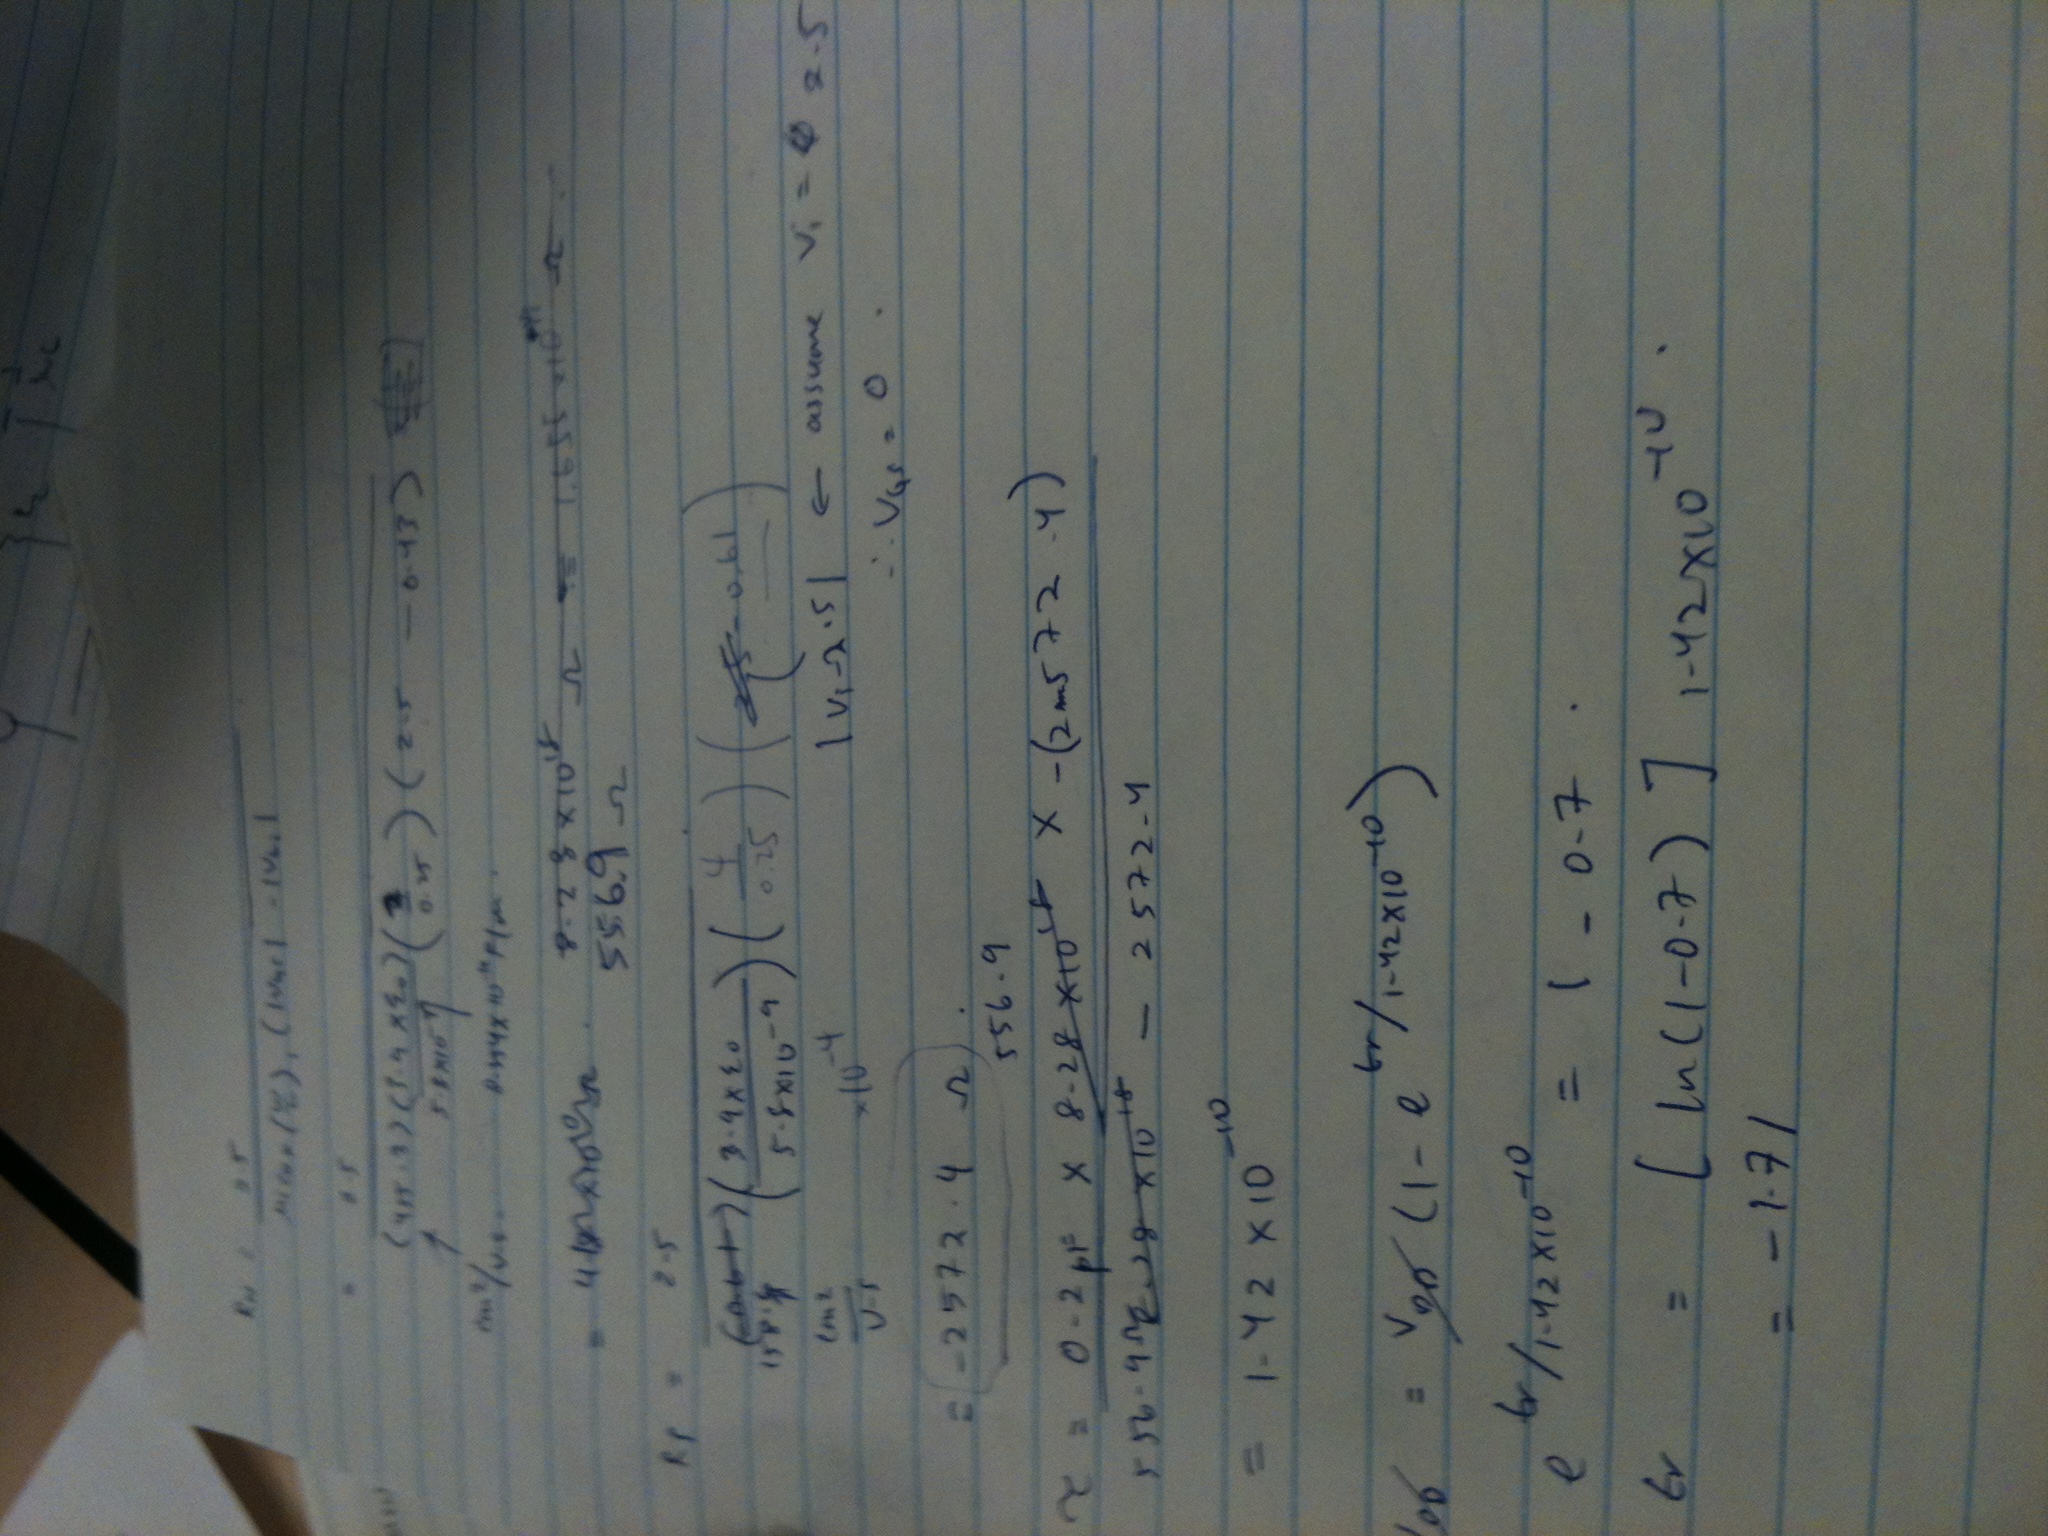 RN = 2.5
μnCox (W/L), (|VGS| - |Vtn|
= 2.5
( ) (3.9 × ε0) ( /0.25) (2.5 - 0.43)
5.8×10
cm²/V.s. 8.854×10 F/m.
= 8.28 ×10^18 Ω = 1.655 ×10 Ω
556.9 Ω
RP = 2.5
(0.61) (3.9×ε0) (4) (2.5 - 0.61)
158. 5.8×10^-9 0.25
cm2
V-s ×10^-4 |Vi-2.5| ← assume Vi = 2.5
∴ VGS = 0 .
= -2572.4 Ω .
556.9
τ = 0.2pF × 8.28 ×10^18 × -(2 572.4)
556.9Ω 8.28 ×10^18 - 2572.4
= 1.42 ×10^-10
= VDD (1 - e^tr/1.42×10^-10)
e^tr/1.42×10^-10 = 1 - 0.7 .
tr = [ ln(1-0.7) ] 1.42×10^-10 .
= -1.71